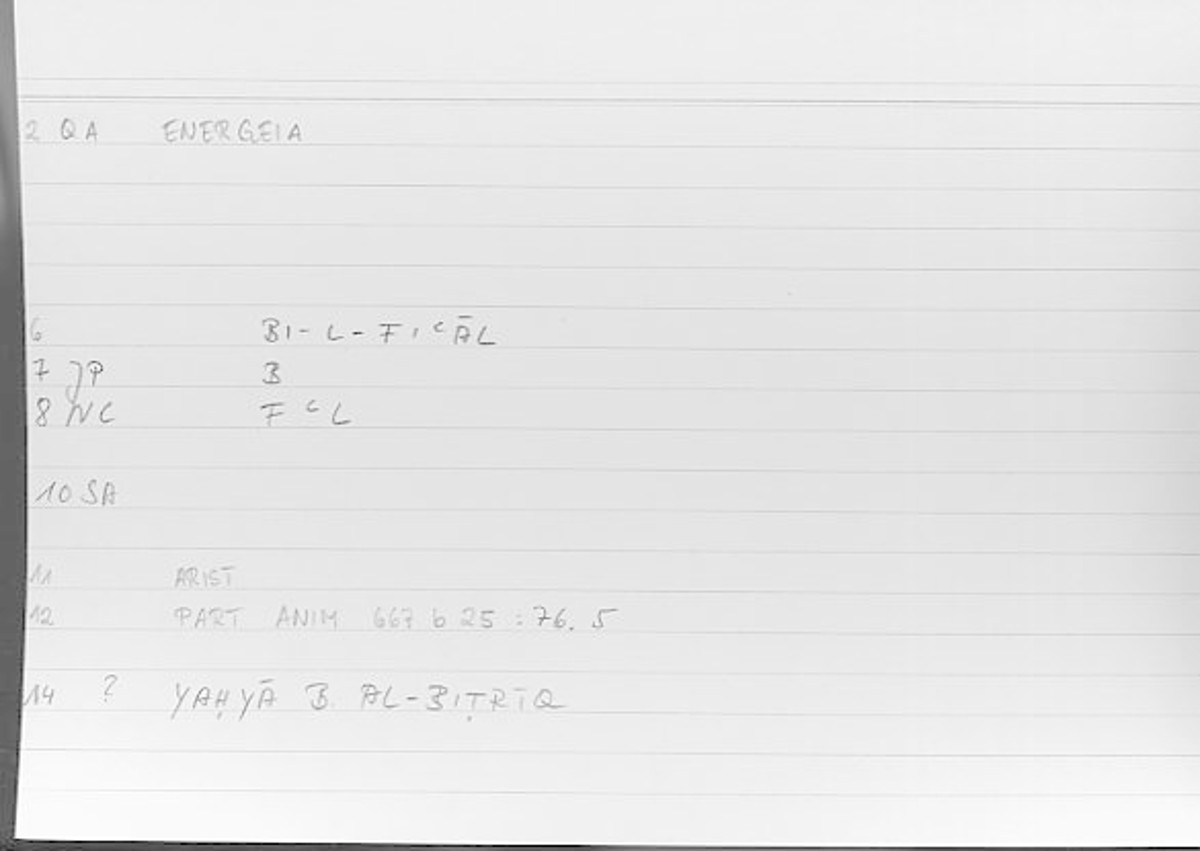 2 QA ENERGEIA
6 BI-L-FIʿĀL
7 JP B
8 NC FʿL
10 SA
11 ARIST
12 PART ANIM 667 b 25 : 76. 5
14 ? YAḤYĀ B. AL-BIṬRĪQ